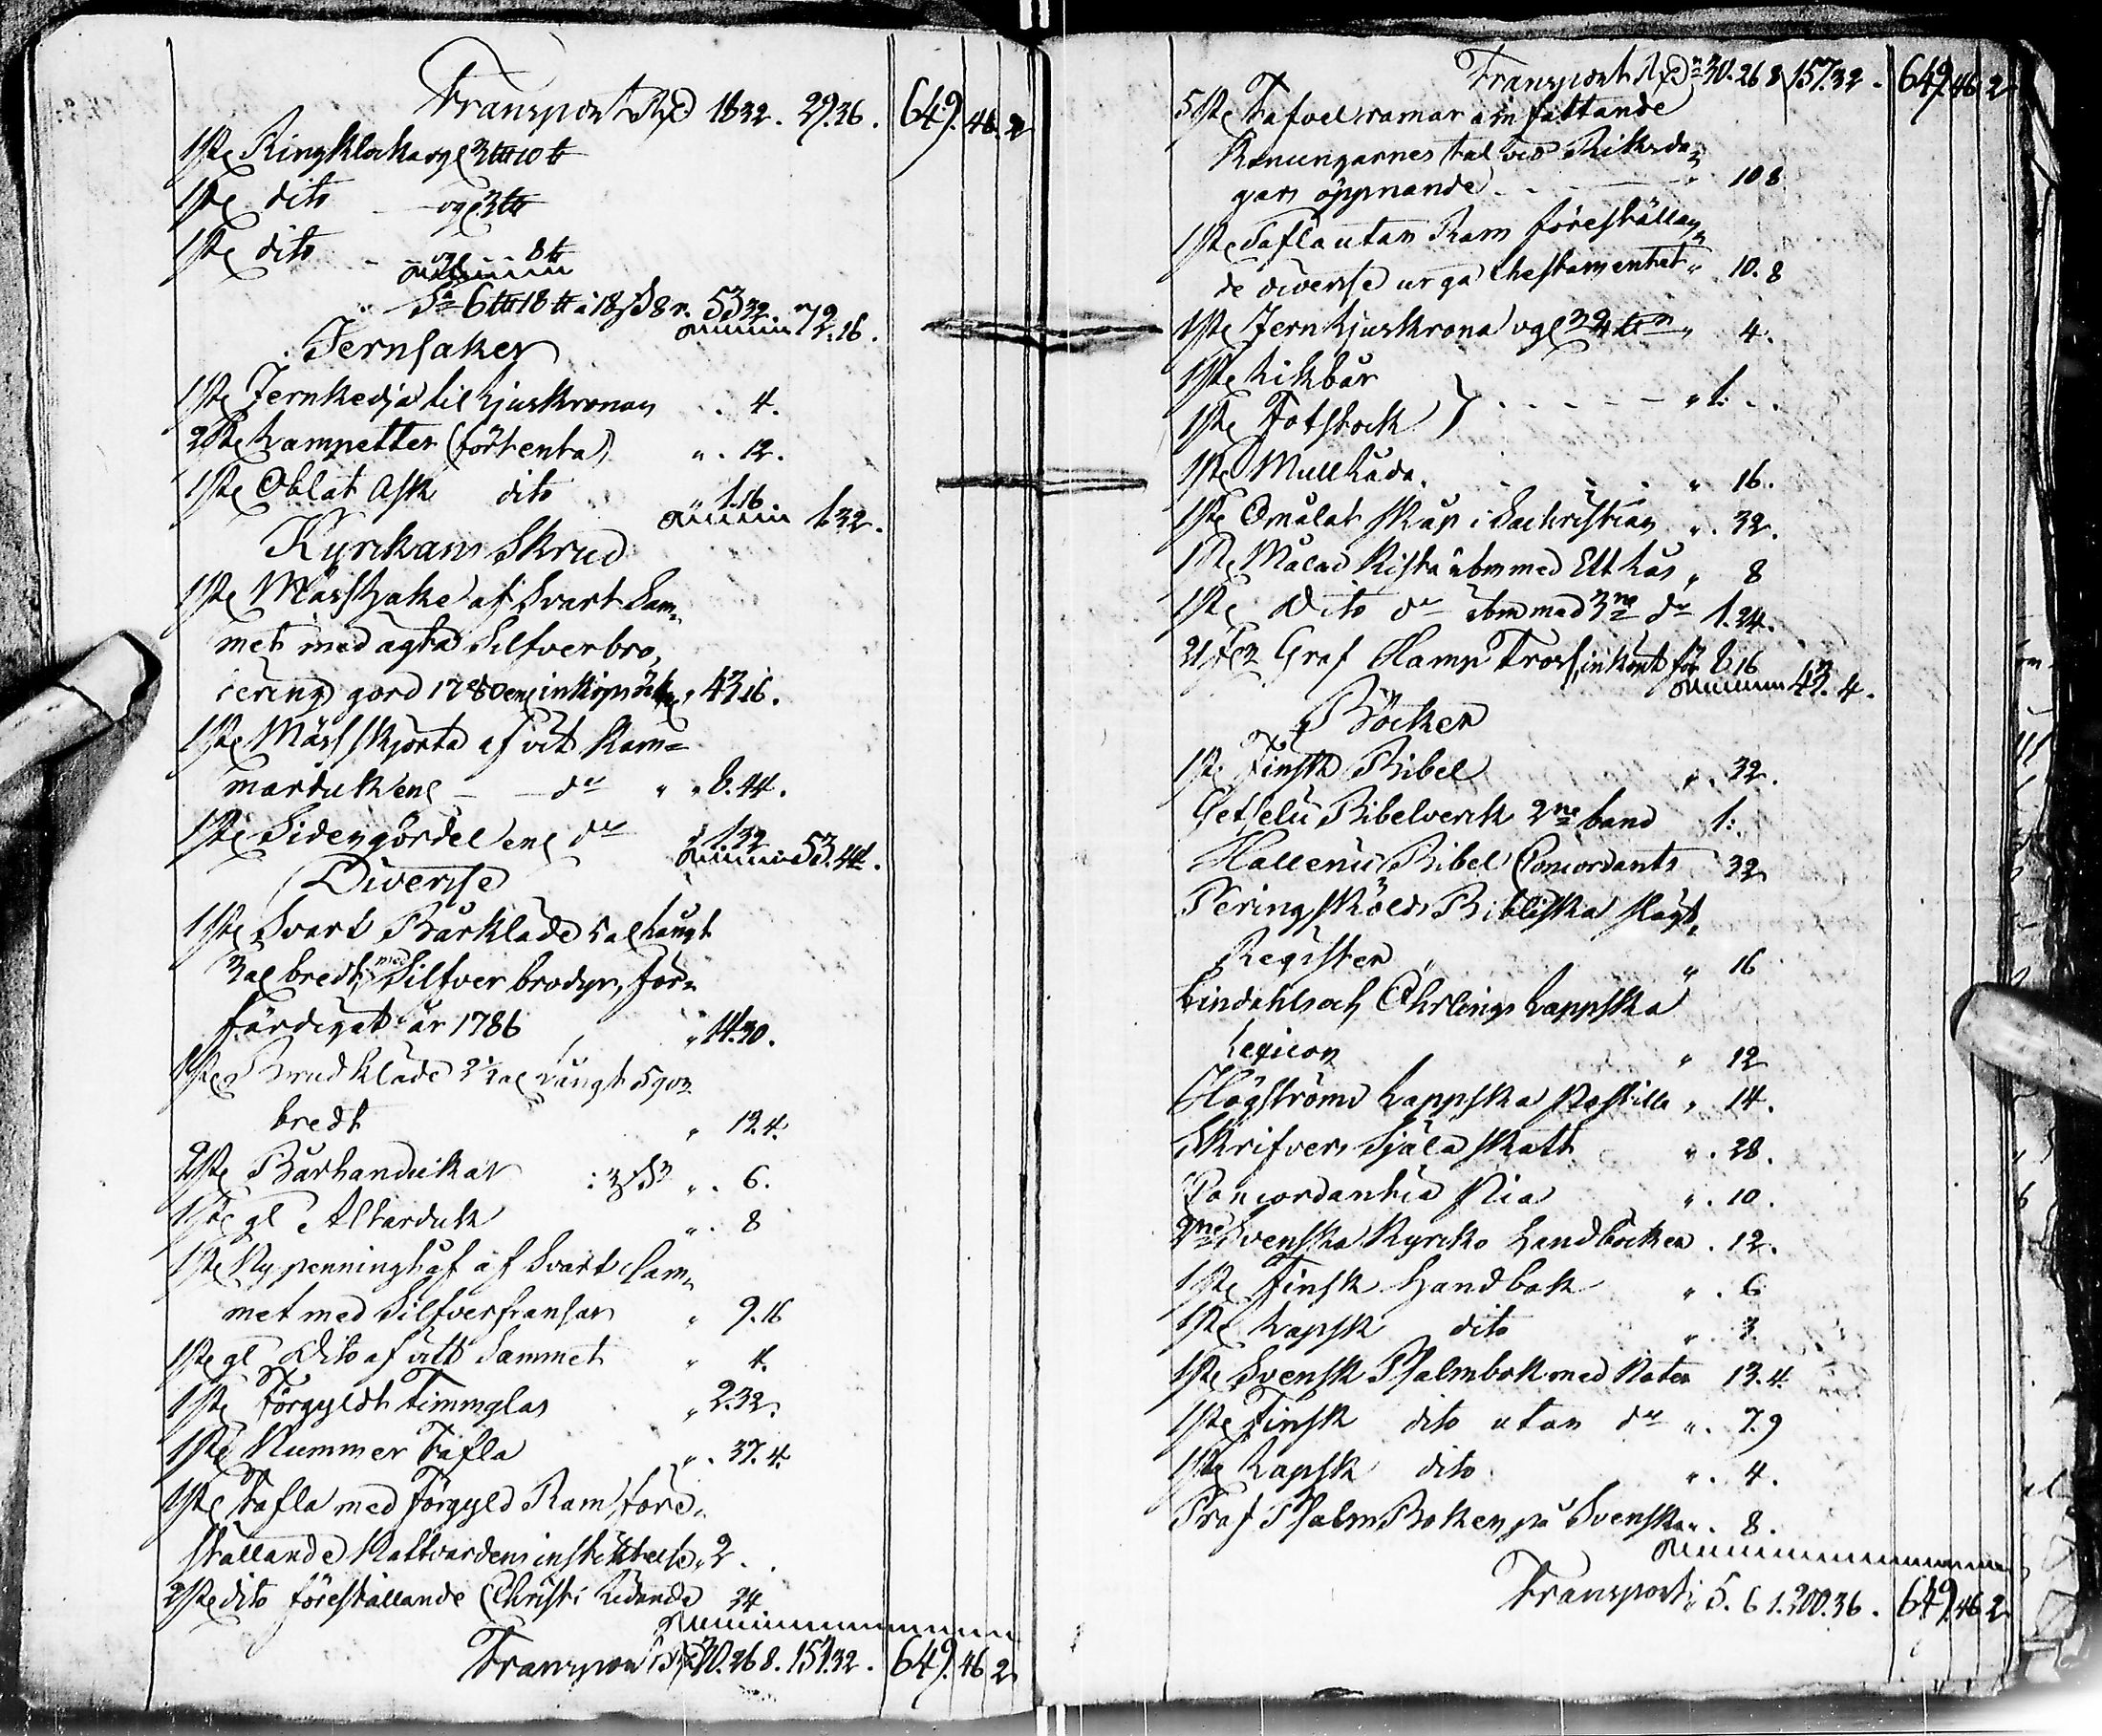 Transport Rd 18 32. 29. 36. 649. 46. 2
1 st. Ringklocka vgl 3 ℔ 10 ℔
1 st. dito vgl 3 ℔
1 st. dito vgl 8 ℔
Sa 6 ℔ 18 ℔ a 18 ß 8 r. 53 32. 72. 16.
Jernsaker
1 st. Jernkedja til Ljuskronan . 4.
2 st. Lampetter (förtenta) „ . 12.
1 st. Oblat Ask dito „ 1.16 1.32.
Kyrckans Skrud
1 st. Mässhake af Svart Sam„
met med ägta Silfverbro„
dering gjord 1780 enl inköpsräkn „ 43 16.
1 st. Mässskjorta af vit Kam=
marduk enl — do „ „ 8. 44.
1 st. Sidengördel enl do „ 1 32 53. 44.
Diverse
1 st. Svart Bårkläde 5 al långt
3 al bredt, med Silfver brodyr, för„
färdigat år 1786 „ 14. 30.
1 st. Brudkläde 2 1/2 al långt 5 qvr
bredt „ 12. 4.
2 st. Bårhandukar a 3 ß „ . 6.
1 st. gl Altarduk „ . 8
1 st. Ny penninghåf af Svart Sam„
met med Silfverfransar „ 9. 16
1 st. gl Dito af vitt Sammet „ 4.
1 st. Förgyldt Timmglas „ 2 32.
1 st. Nummer Tafla „ . 37. 4.
1 st. Tafla med förgyld Ram före„
ställande Nattvardens instiktelse „ 2.
2 st. dito föreställande Christi Lidande 24
Transport Rd 30. 26 8. 157. 32. 649. 46 2
Transport Rd 30. 26 8 157. 32. 649. 46 2
5 st. Tafvelramar innfattande
Konungarnes tal vid Riksda„
gars öppnande „ 10 8
1 st. Tafla utan Ram föreställan„
de diverse ur ga Thestamentet „ 10. 8
1 st. Jern Ljuskrona vgl „ 4.
1 st. Likbår
1 st. Fotstock } „ 1. .
1 st. Mull Låda „ 16.
1 st. Omålat Skåp i Sackristian „ . 32.
1 st. Målad Kista utom med Ett Lås „ 8
1 st. Dito do utom med 3ne do 1. 24.
Graf Kamp Tross, inköpt för 6 16 43. 4.
Böcker
1 st. Finsk Bibel „ . 32.
Getselii Bibelverck 2ne band 1.
Hallenii Bibel Concordants 32
Peringskölds Bibliska Slägt„
Register „ „ 16
Lindahls och Öhrlings Lappska
Lexicon „ 12
Högströms Lappska Postilla „ 14.
Skrifvers Själaskatt „ . 28.
Concordantia Pia „ . 10.
2ne Svenska Kyrcko Handböcker . 12.
1 st. Finsk Handbok „ . 6
1 st. Lapsk dito „ 3
1 st. Svensk Psalmbok med Noter 13. 4.
1 st. Finsk dito utan do „ . 7. 9
1 st. Lapsk dito „ . 4.
Prof Psalm Boken på Svenska „ . 8.
Transport „ 5. 6 1. 200. 36. 649. 46 2